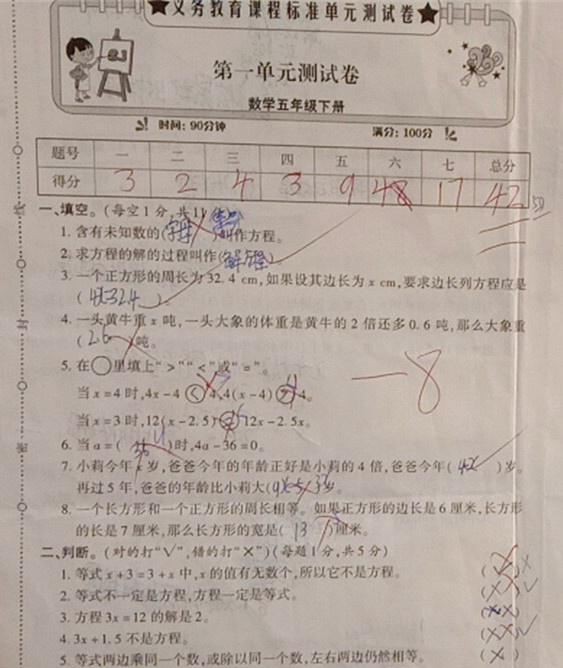 ★义务教育课程标准单元测试卷★
第一单元测试卷
数学五年级下册
时间：90分钟 满分：100分
题号 一 二 三 四 五 六 七 总分
得分 3 2 4 3 9 17 42
一、填空。(每空1分,共11分)
1. 含有未知数的( )叫作方程。
2. 求方程的解的过程叫作(解方程)。
3. 一个正方形的周长为32.4 cm,如果设其边长为x cm,要求边长列方程应是
(4x=32.4)。
4. 一头黄牛重x吨,一头大象的体重是黄牛的2倍还多0.6吨,那么大象重
( )吨。
5. 在○里填上“>”“<”或“=”。
当x=4时,4x-4○4,4(x-4)○4。
当x=3时,12(x-2.5)○12x-2.5x。
—8
6. 当a=( )时,4a-36=0。
7. 小莉今年x岁,爸爸今年的年龄正好是小莉的4倍,爸爸今年(4x)岁。
再过5年,爸爸的年龄比小莉大( )岁。
8. 一个长方形和一个正方形的周长相等。如果正方形的边长是6厘米,长方形
的长是7厘米,那么长方形的宽是( )厘米。
二、判断。(对的打“√”,错的打“×”)(每题1分,共5分)
1. 等式x+3=3+x中,x的值有无数个,所以它不是方程。
2. 等式不一定是方程,方程一定是等式。
3. 方程3x=12的解是2。
4. 3x+1.5不是方程。
5. 等式两边乘同一个数,或除以同一个数,左右两边仍然相等。 (×)
线
封
密